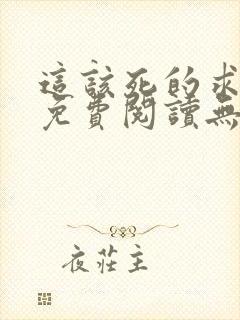 這該死的求
免費閱讀無
夜莊主